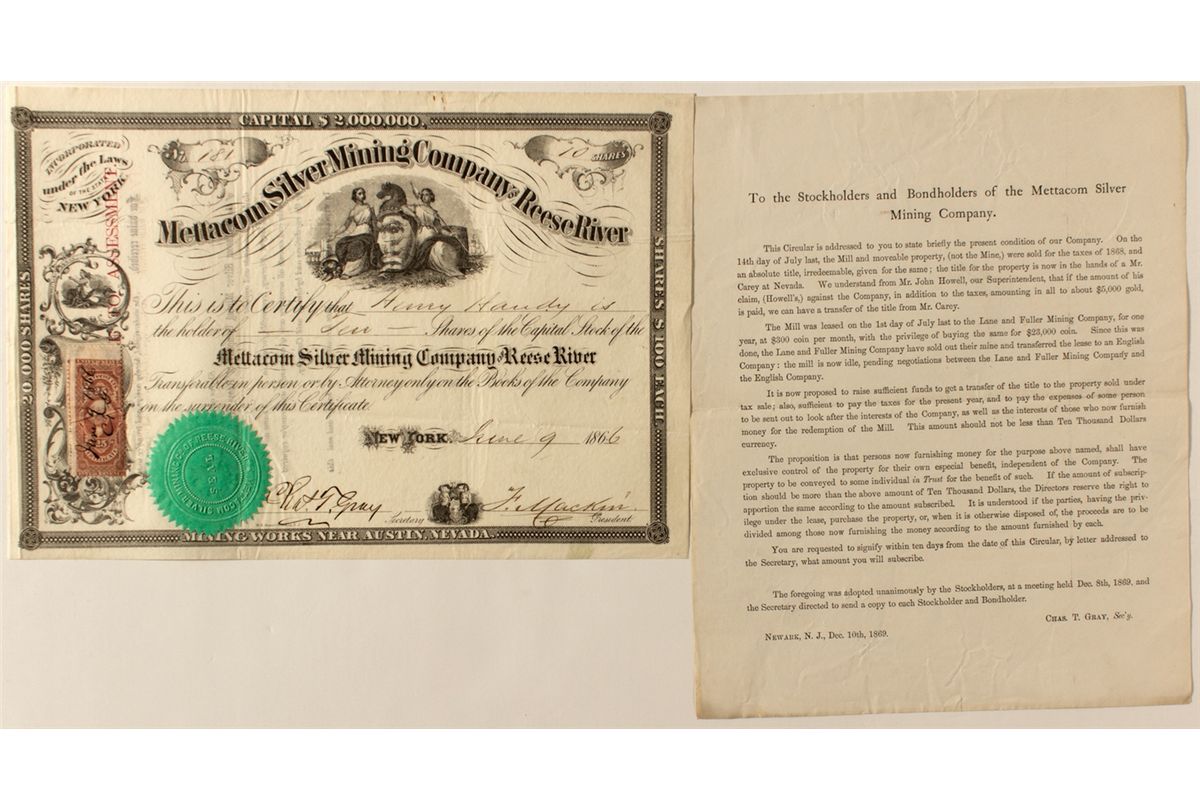 CAPITAL $ 2,000,000.
INCORPORATED
under the Laws
OF THE STATE
NEW YORK
No. 181
10 SHARES
Mettacom Silver Mining Company of Reese River
20,000 SHARES
SHARES $ 100 EACH
ASSESSMENT.
This is to Certify that Henry Handy is
the holder of Ten Shares of the Capital Stock of the
Mettacom Silver Mining Company of Reese River
Transferable in person or by Attorney only on the Books of the Company
on the surrender of this Certificate.
NEW YORK. June 9 1866
Chas T. Gray
Secretary
F. Mackin
President
MINING WORKS NEAR AUSTIN, NEVADA.
To the Stockholders and Bondholders of the Mettacom Silver
Mining Company.
This Circular is addressed to you to state briefly the present condition of our Company. On the
14th day of July last, the Mill and moveable property, (not the Mine,) were sold for the taxes of 1868, and
an absolute title, irredeemable, given for the same; the title for the property is now in the hands of a Mr.
Carey at Nevada. We understand from Mr. John Howell, our Superintendent, that if the amount of his
claim, (Howell's,) against the Company, in addition to the taxes, amounting in all to about $5,000 gold,
is paid, we can have a transfer of the title from Mr. Carey.
The Mill was leased on the 1st day of July last to the Lane and Fuller Mining Company, for one
year, at $300 coin per month, with the privilege of buying the same for $23,000 coin. Since this was
done, the Lane and Fuller Mining Company have sold out their mine and transferred the lease to an English
Company: the mill is now idle, pending negotiations between the Lane and Fuller Mining Company and
the English Company.
It is now proposed to raise sufficient funds to get a transfer of the title to the property sold under
tax sale; also, sufficient to pay the taxes for the present year, and to pay the expenses of some person
to be sent out to look after the interests of the Company, as well as the interests of those who now furnish
money for the redemption of the Mill. This amount should not be less than Ten Thousand Dollars
currency.
The proposition is that persons now furnishing money for the purpose above named, shall have
exclusive control of the property for their own especial benefit, independent of the Company. The
property to be conveyed to some individual in Trust for the benefit of such. If the amount of subscrip-
tion should be more than the above amount of Ten Thousand Dollars, the Directors reserve the right to
apportion the same according to the amount subscribed. It is understood if the parties, having the priv-
ilege under the lease, purchase the property, or, when it is otherwise disposed of, the proceeds are to be
divided among those now furnishing the money according to the amount furnished by each.
You are requested to signify within ten days from the date of this Circular, by letter addressed to
the Secretary, what amount you will subscribe.
The foregoing was adopted unanimously by the Stockholders, at a meeting held Dec. 8th, 1869, and
the Secretary directed to send a copy to each Stockholder and Bondholder.
CHAS. T. GRAY, Sec'y.
NEWARK, N. J., Dec. 10th, 1869.